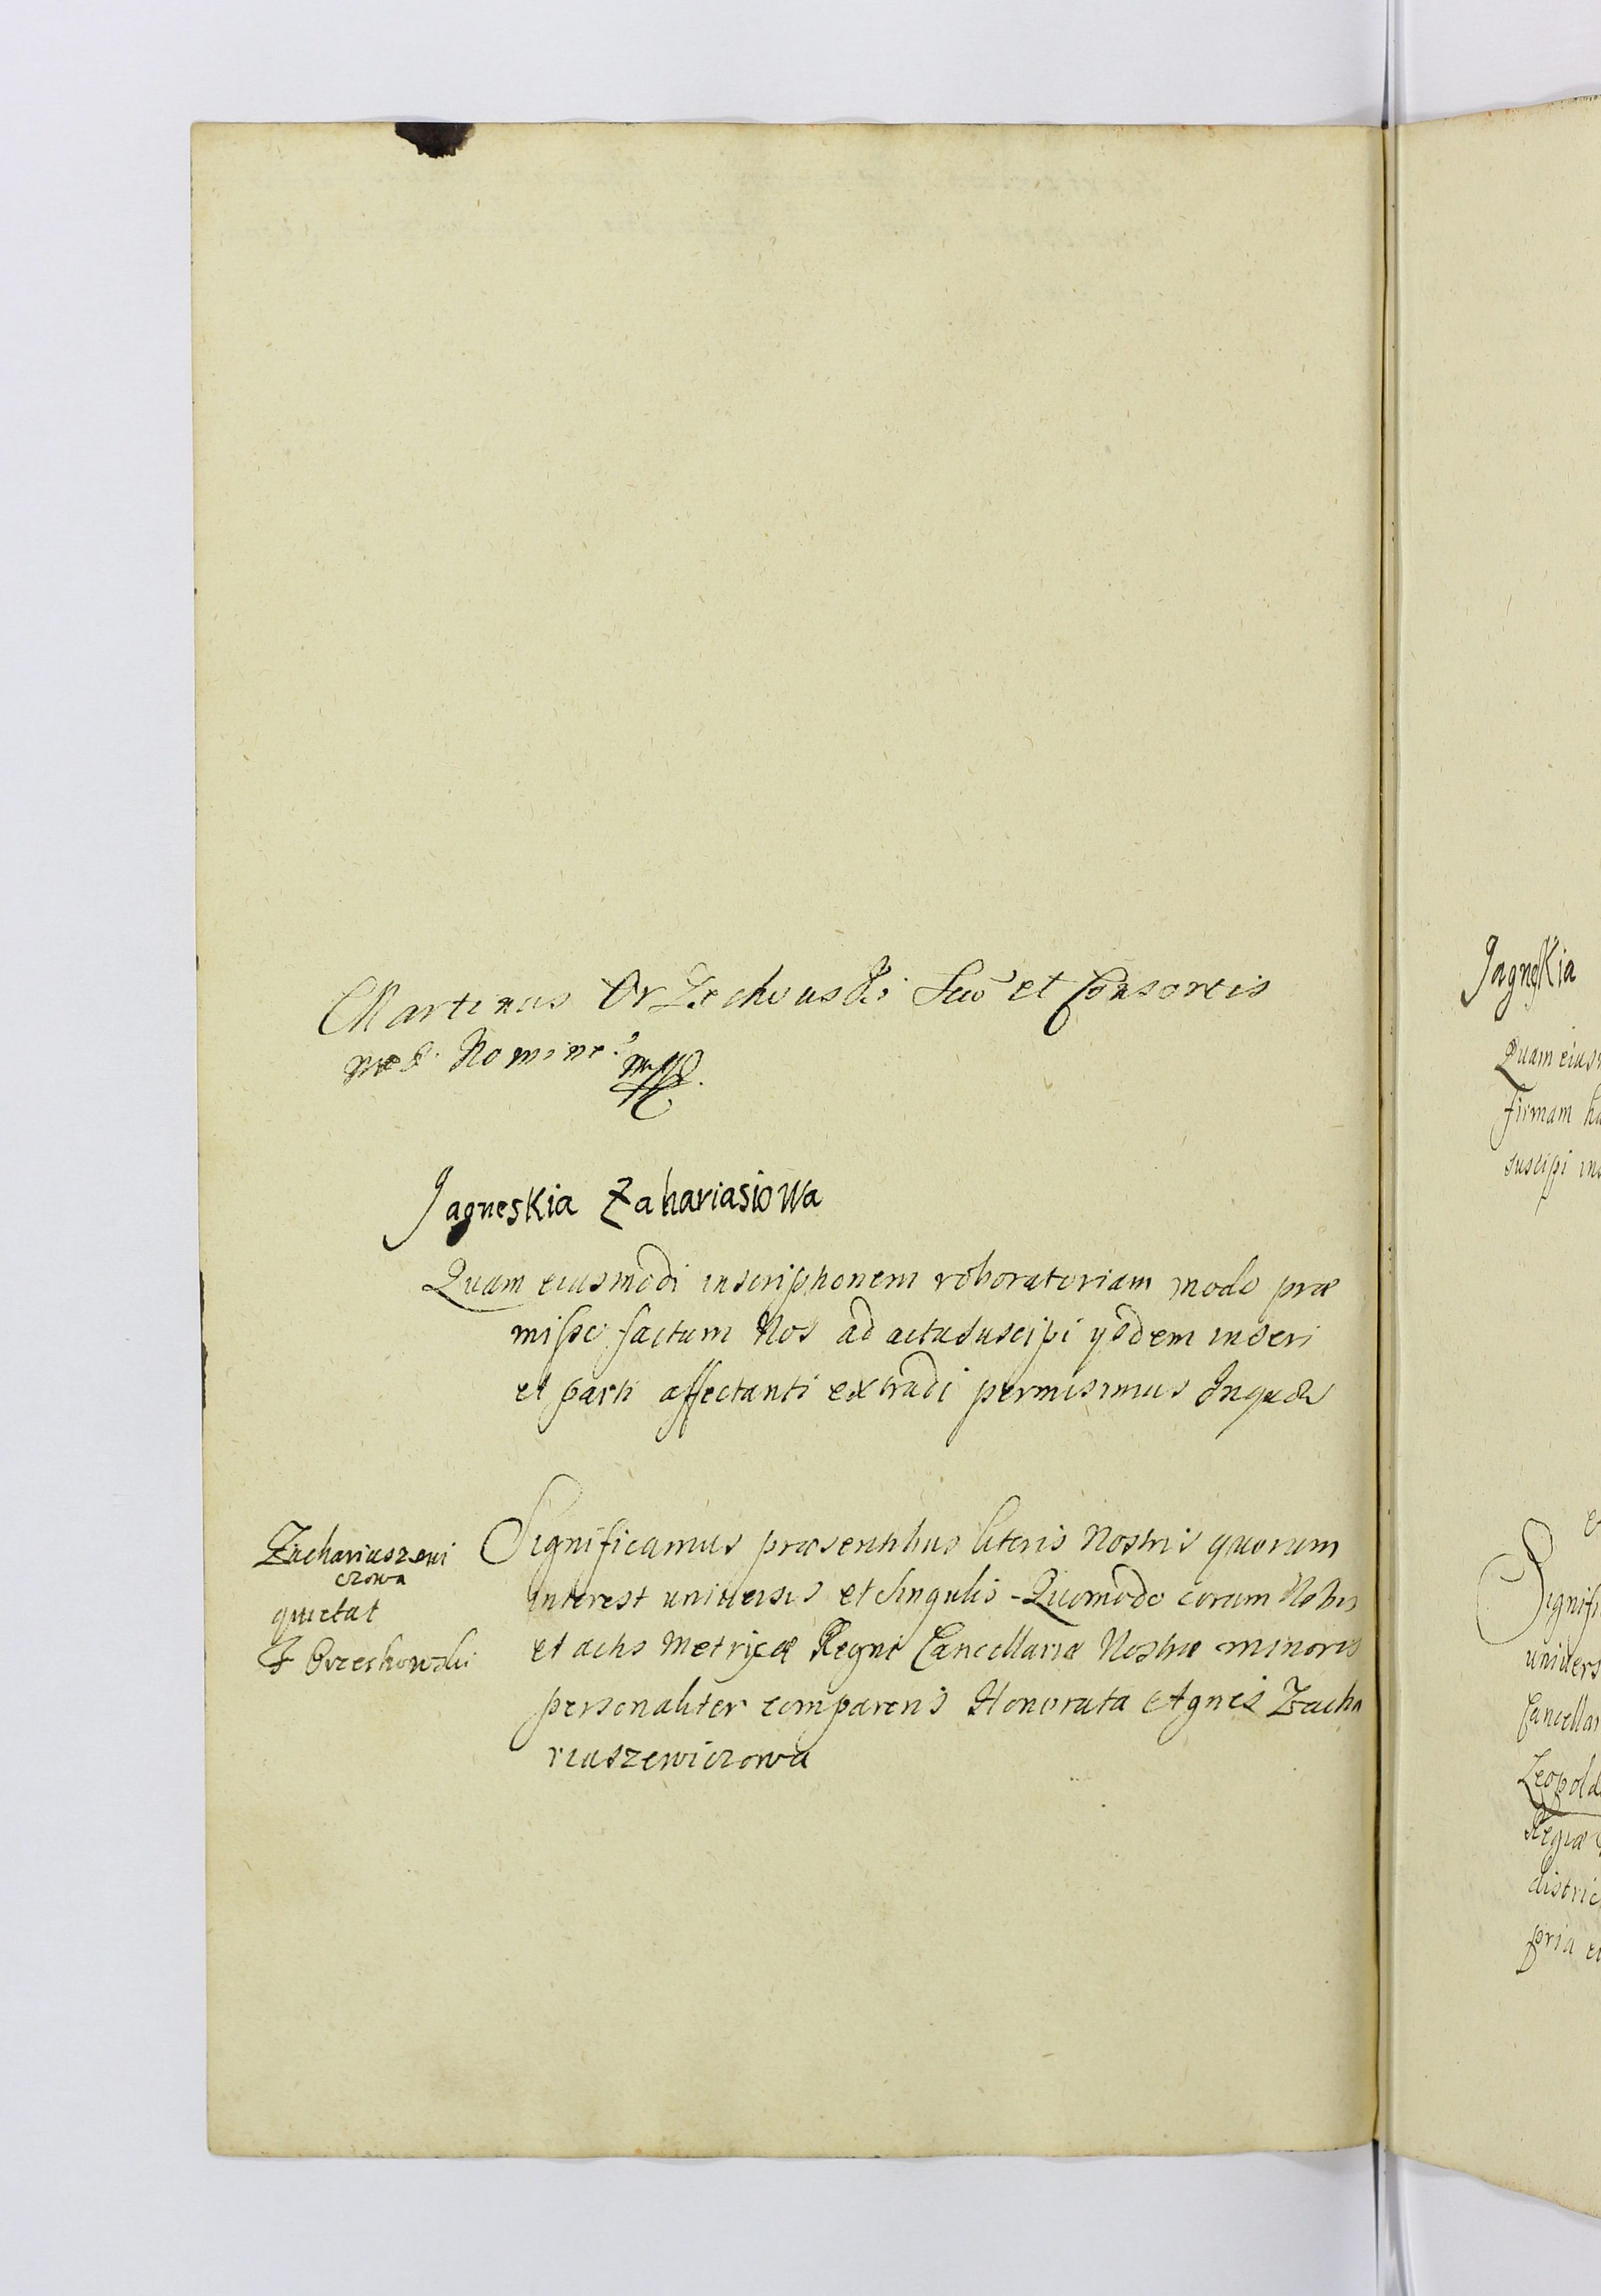 Martinus Orzechouski suo et Consortis
meæ Nomine
mp
Jagneskia Zahariasiowa
Quam eiusmodi inscriptionem roboratoriam modo præ
misso factam Nos ad acta suscipi ysdem inseri
et parti affectanti extradi permisimus Inquor
Zachariaszewi
czowa
quietat
G Orzechowski
Significamus præsentibus literis Nostris quorum
interest universis et singulis Quomodo coram Nobis
et actis Metricæ Regni Cancellariæ Nostræ minoris
personaliter comparens Honorata Agnes Zacha
riaszewiczowa
Jagneskia
Quam eius
firmam ha
suscipi in
Signifi
univers
Cancellar
Leopold
Regiæ
distric
pria